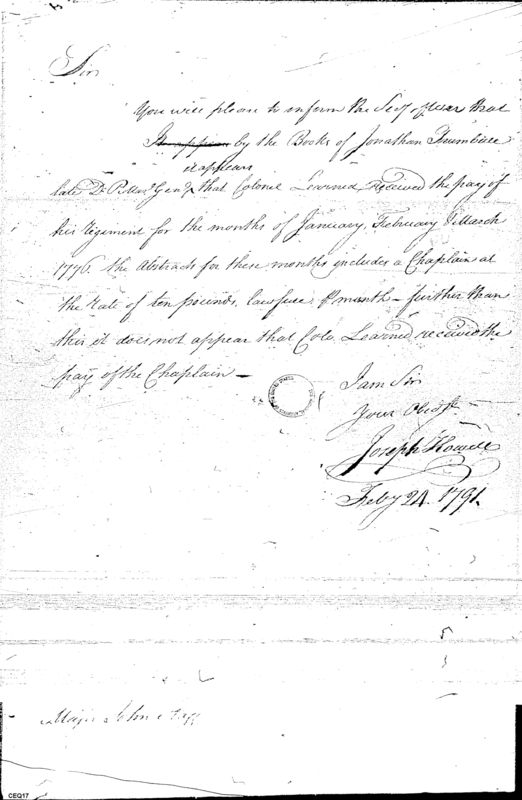 Sir
You will please to inform the Secy of War that
It appears by the Books of Jonathan Trumbull
it appears
late Dy P. Mas. Genl that Colonel Learned received the pay of
his Regiment for the months of January, February & March
1776. the Abstracts for these months includes a Chaplain at
the rate of ten pounds, lawful pr month – further than
this it does not appear that Colo. Learned received the
pay of the Chaplain –
I am Sir
Your Obedt
Joseph Howell
Feby 24. 1791.
Major John Stagg
CEQ17